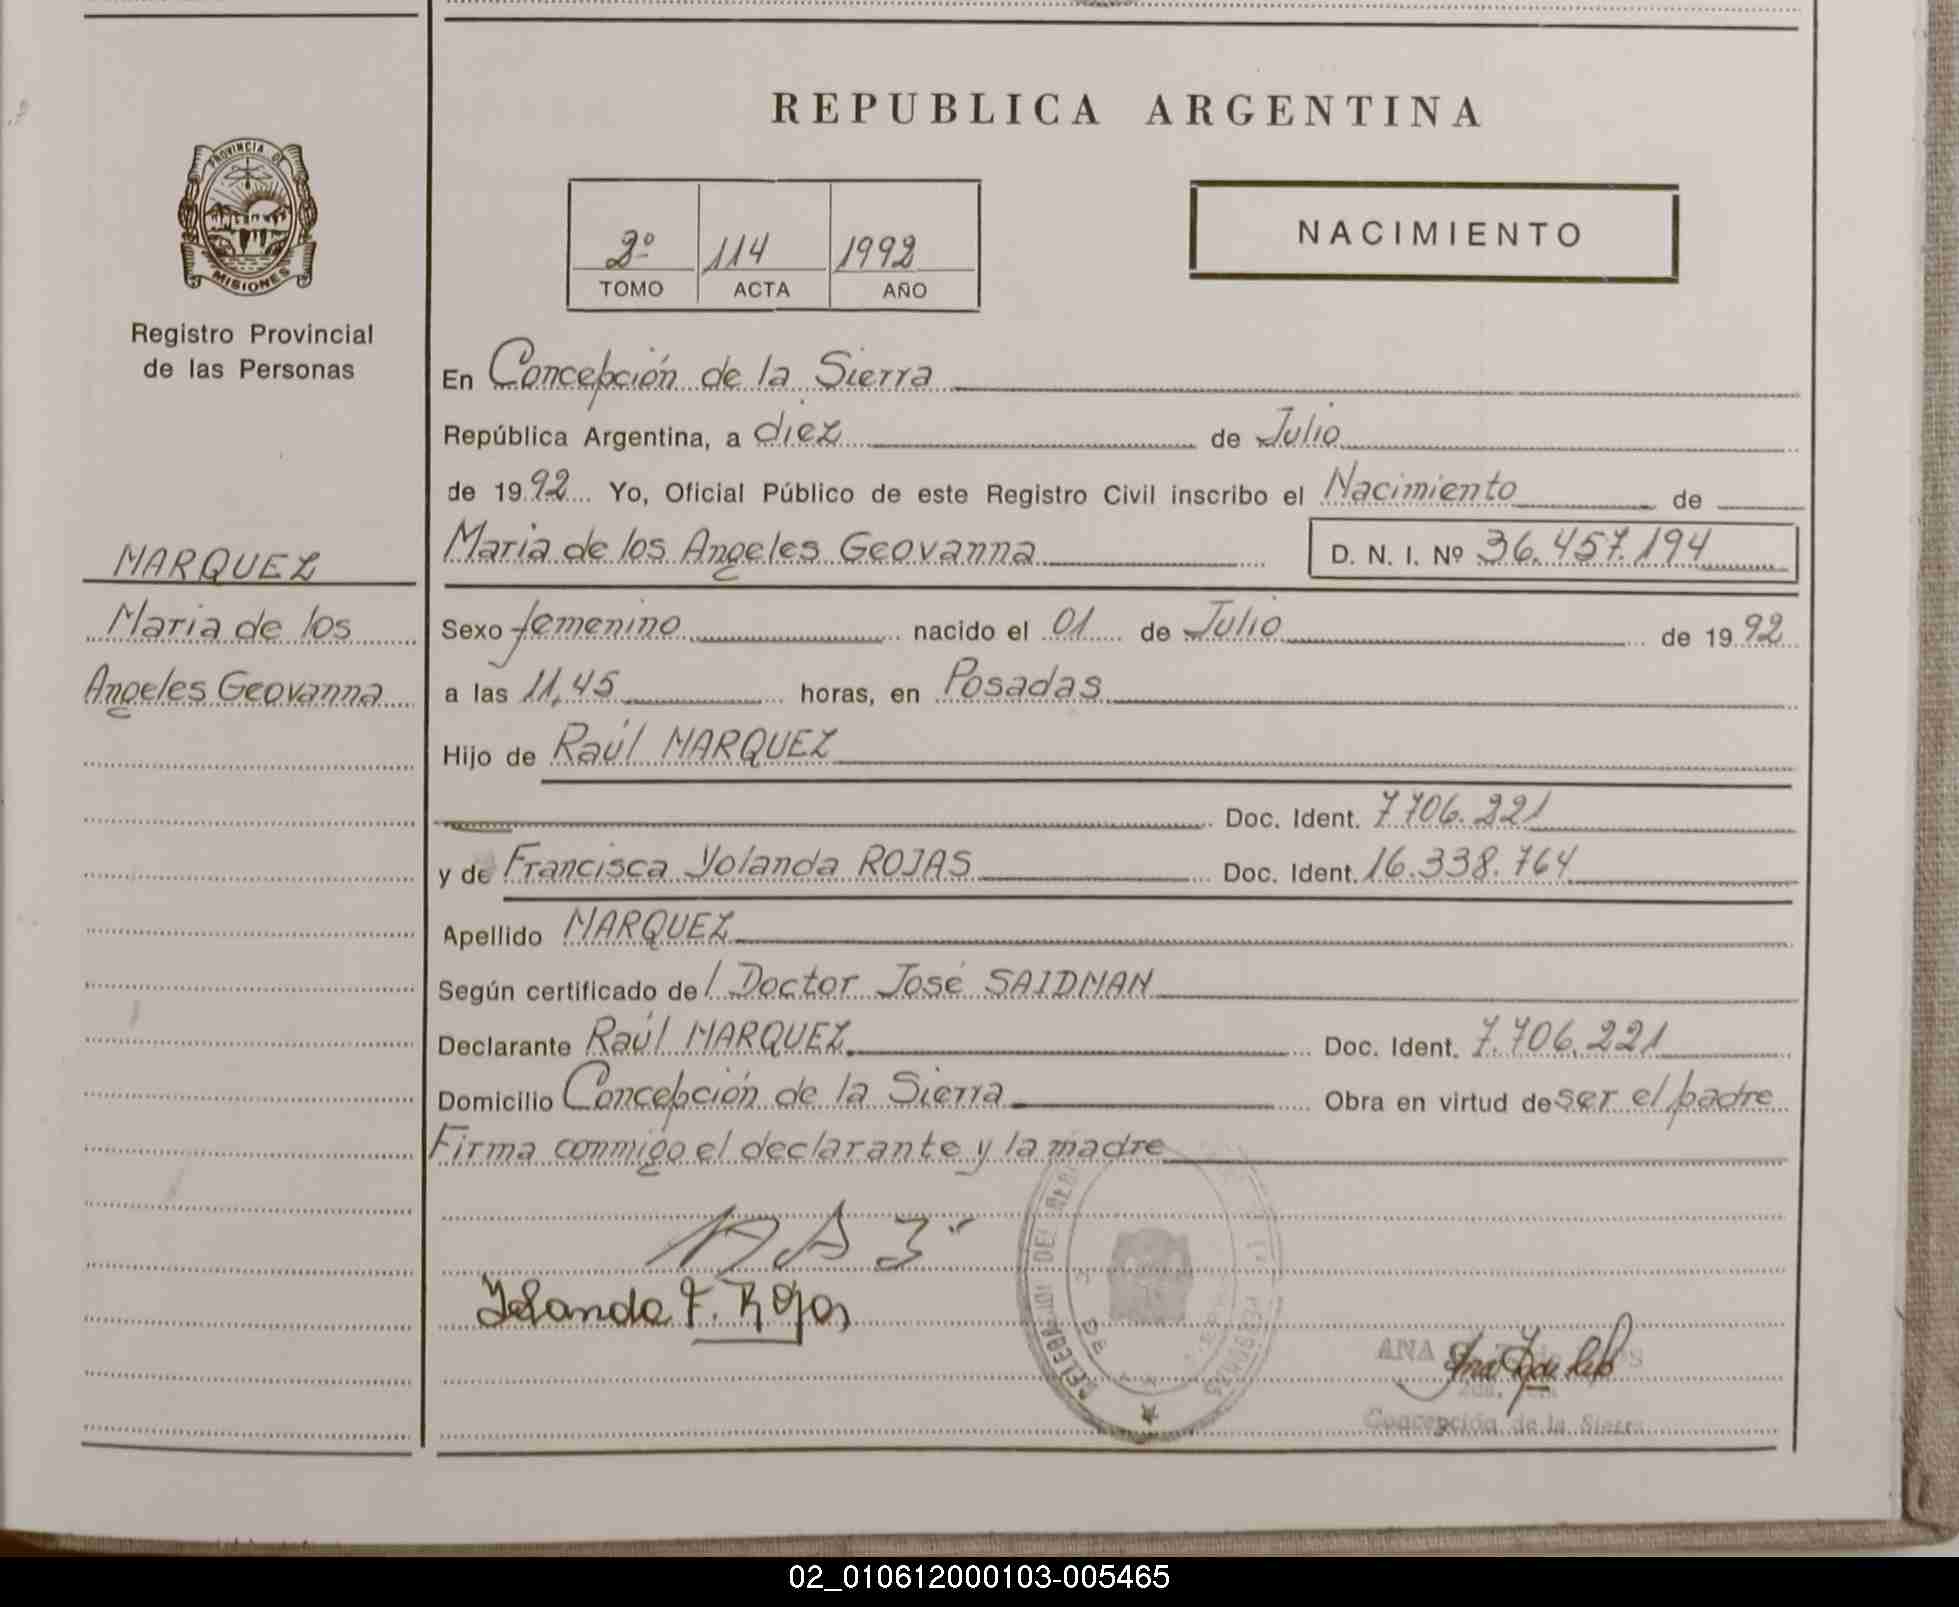 PROVINCIA DE
MISIONES
Registro Provincial
de las Personas
MARQUEZ
Maria de los
Angeles Geovanna
REPUBLICA ARGENTINA
2º 114 1992
TOMO ACTA AÑO
NACIMIENTO
En Concepción de la Sierra
República Argentina, a diez de Julio
de 1992 Yo, Oficial Público de este Registro Civil inscribo el Nacimiento de
Maria de los Angeles Geovanna D. N. I. Nº 36.457.194
Sexo femenino nacido el 01 de Julio de 1992
a las 11,45 horas, en Posadas
Hijo de Raúl MARQUEZ
Doc. Ident. 7.706.221
y de Francisca Yolanda ROJAS Doc. Ident. 16.338.764
Apellido MARQUEZ
Según certificado del Doctor José SAIDMAN
Declarante Raúl MARQUEZ Doc. Ident. 7.706.221
Domicilio Concepción de la Sierra Obra en virtud de ser el padre
Firma conmigo el declarante y la madre
Yolanda F. Rojas
ANA
Concepción de la Sierra
02_010612000103-005465